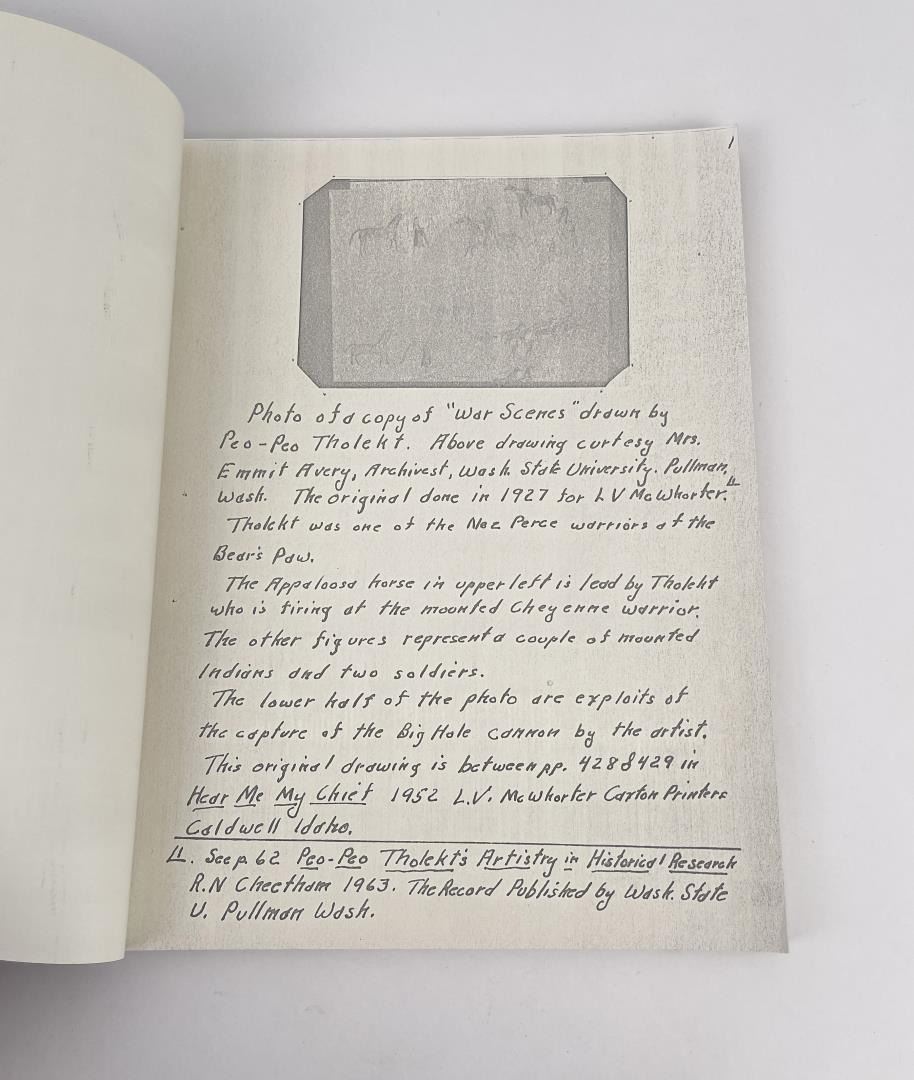 Photo of a copy of "War Scenes" drawn by
Peo-Peo Tholekt. Above drawing curtesy Mrs.
Emmit Avery, Archivest, Wash. State University. Pullman,
Wash. The original done in 1927 for L V McWhorter.⁴
Tholekt was one of the Nez Perce warriors at the
Bear's Paw.
The Appaloosa horse in upper left is lead by Tholekt
who is firing at the mounted Cheyenne warrior.
The other figures represent a couple of mounted
Indians and two soldiers.
The lower half of the photo are exploits of
the capture of the Big Hole cannon by the artist.
This original drawing is between pp. 428 & 429 in
Hear Me My Chief 1952 L.V. McWhorter Caxton Printers
Caldwell Idaho.
4. See p. 62 Peo-Peo Tholekt's Artistry in Historical Research
R.N Cheetham 1963. The Record Published by Wash. State
U. Pullman Wash.